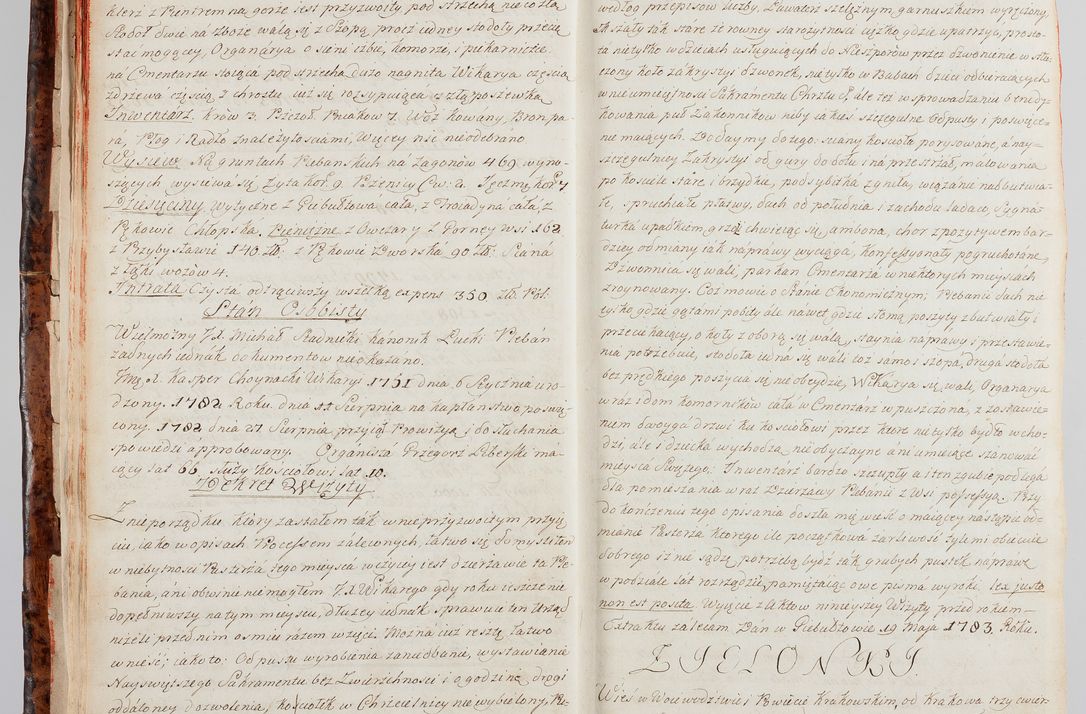 który z Pientrem na gorze jest przyzwoity pod strzechą nie co zła
Stodoł dwie na zboze walą się z Szopą procz iedney stodoły przecie
stać mogącey, Organarya o sieni izbie, komorze, i piekarnicce
na Cmentarzu stoiąca pod strzecha duzo nagnita Wikarya częścia
zdrzewa częscią z chrostu iuz się rozsypuiąca z złą poszewką
Inwentarz. Krów 3. Pszczoł Pniakow 7. Woz kowany, Bron pa-
ra, Pług i Radło z należytosciami, Więcey nic nieodebrano
Wysiew. Na gruntach Plebanskich na zagonow 469 wyno-
szących, wysiewa się Zyta kor. 9. Pszenicy Cw. 2. Jęczmię. kor. 7
Dziesięciny. Wytyczne z Giebułtowa cała, z Troiadyna cała, z
Pękowic Chłopska. Pieniężne z Owczary z Gorney Wsi 162.
z Przybysławic 140. zł. z Pękowic Dworska 90. złt. Siana
z Łąki wozów 4.
Intrata Czysta odtrąciwszy wszelką expens 350 zł. Pol.
Stan Osobisty
Wielmożny JX. Michał Radnicki kanonik Łucki Pleban
zadnych iednak dokumentow nieokazano.
Jmć X. Kasper Choynacki Wikary 1751 dnia 6 Stycznia uro-
dzony. 1782 Roku dnia 11 Sierpnia na kapłanstwo poswię-
cony. 1782 dnia 27 Sierpnia przyiął Prowizyą i do słuchania
spowiedzi approbowany. Organista Grzegorz Liberski ma-
iący lat 66 służy kosciołowi lat 10.
Dekret Wizyty
Z nieporządku, ktory zastałem tak w nieprzyzwoitym przyię-
ciu, iako w opisach Processem zaleconych, łatwo się domyslitem
w niebytnosci Pasterza tego mieysca w czyiey iest dzierzawie ta Ple-
bania, ani obwinie niemogłem JX Wikarego gdy roku ieszcze nie
dopełniwszy na tym mieyscu, dłuzey iednak sprawuie ten Urząd
niżeli przed nim osmiu razem wzięci. Można iuz resztę łatwo
wnieść; iako to: Od pustu wyrobienia zaniedbanie, wystawianie
Nayswiętszego Sakramentu bez Zwierzchnosci i o godzinę drogi
oddaloney dozwolenia, kosciołek w Chrzcielnicy nie wybielony, Pu-
według przepisow liczby. Lawaterz szelężnym garnuszkiem wyręczony.
Aparaty tak stare ze rowney staroztnosci ciężko gdzie upatrzyc, prosto-
ta nietylko w dzieciach usługuiących do Nieszporów przez dzwonienie w stła-
czony koło zakrystyi dzwonek, nietylko w Babach dzieci odbieraiących
w nieumieiętnosci Sakramentu Chrztu S. ale tez w sprowadzaniu benedy-
kowania puł Zakonnikow niby iakies szczegulne odpusty i poswięce-
nie maiących. Dodaymy do tego: sciany koscioła porysowane, a nay-
szczegulniey Zakrystyi od gury do dołu i na przestrzał, malowania
po kosciele stare i brzydkie, podsybitka zgniła, wiązanie nadbutwia-
łe, spruchiałe płatwy, dach od południa i zachodu ladaco, Sygna-
turka upadkiem grozi chwieiąc się, ambona, chor z pozytywem bar-
dziey odmiany iak naprawy wyciąga, Konfessyonały pogruchotane,
Dzwonnica się wali, parkan Cmentarza w niektorych mieyscach
zruynowany. Coz mowic o Stanie Ekonomicznym; Plebanii dach nie
tylko gdzie gątami pobity ale nawet gdzie słomą poszyty zbutwiały i
przeciekaiący, okoły z oborą się walą, staynia naprawy i przestawie-
nia potrzebuie, stodoła iedna się wali toz samo i szopa, druga stodoła
bez prędkiego poszycia się nieobeydzie, Wikarya się wali, Organarya
wraz i dom komornikow cała w Cmentarz wpuszczona, z zostawie-
niem dwoyga drzwi ku kosciołowi przez ktore nietylko bydło wcho-
dzi, ale i dziecka wychodzą nieobyczayne ani umieiące szanować
mieysca Swiętego. Inwentarz bardzo szczupły a i ten zgubie podlega
dla pomieszania wraz Dzierzawy Plebanii z Wsi possessyą. Przy
dokończeniu tego opisania doszła mię wieść o maiącey nastąpić od-
mianie Pasterza ktorego ile początkowa zarliwość tyle mi obiecuie
dobrego iz nie sądzę potrzebą bydź tak grubych pustek naprawę
w podziale lat rozrządzić, pamiętaiąc owe pisma wyroki. Lex justo
non est posita. Wyiście z Aktow ninieyszey Wizyty przed rokiem
Extraktu zalecam Dan w Giebułtowie 19 Maja 1783. Roku.
ZIELONKI.
Wieś w Woiewodztwie i Powiecie Krakowskim, od Krakowa trzy cwier-